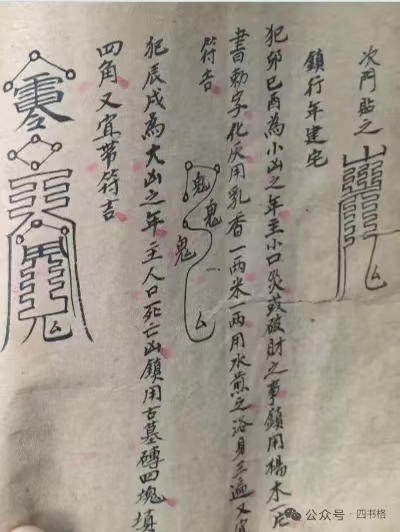 次門貼之
鎮行年建宅
犯卯巳酉為小凶之年主小口災或破財之事鎮用楊木一片
書勅字化灰用乳香一兩米一兩用水煎之浴身三遍又宜
符吉
鬼
鬼
鬼
犯辰戌為大凶之年主人口死亡凶鎮用古墓磚四塊填
四角又宜帶符吉
公众号·四书格